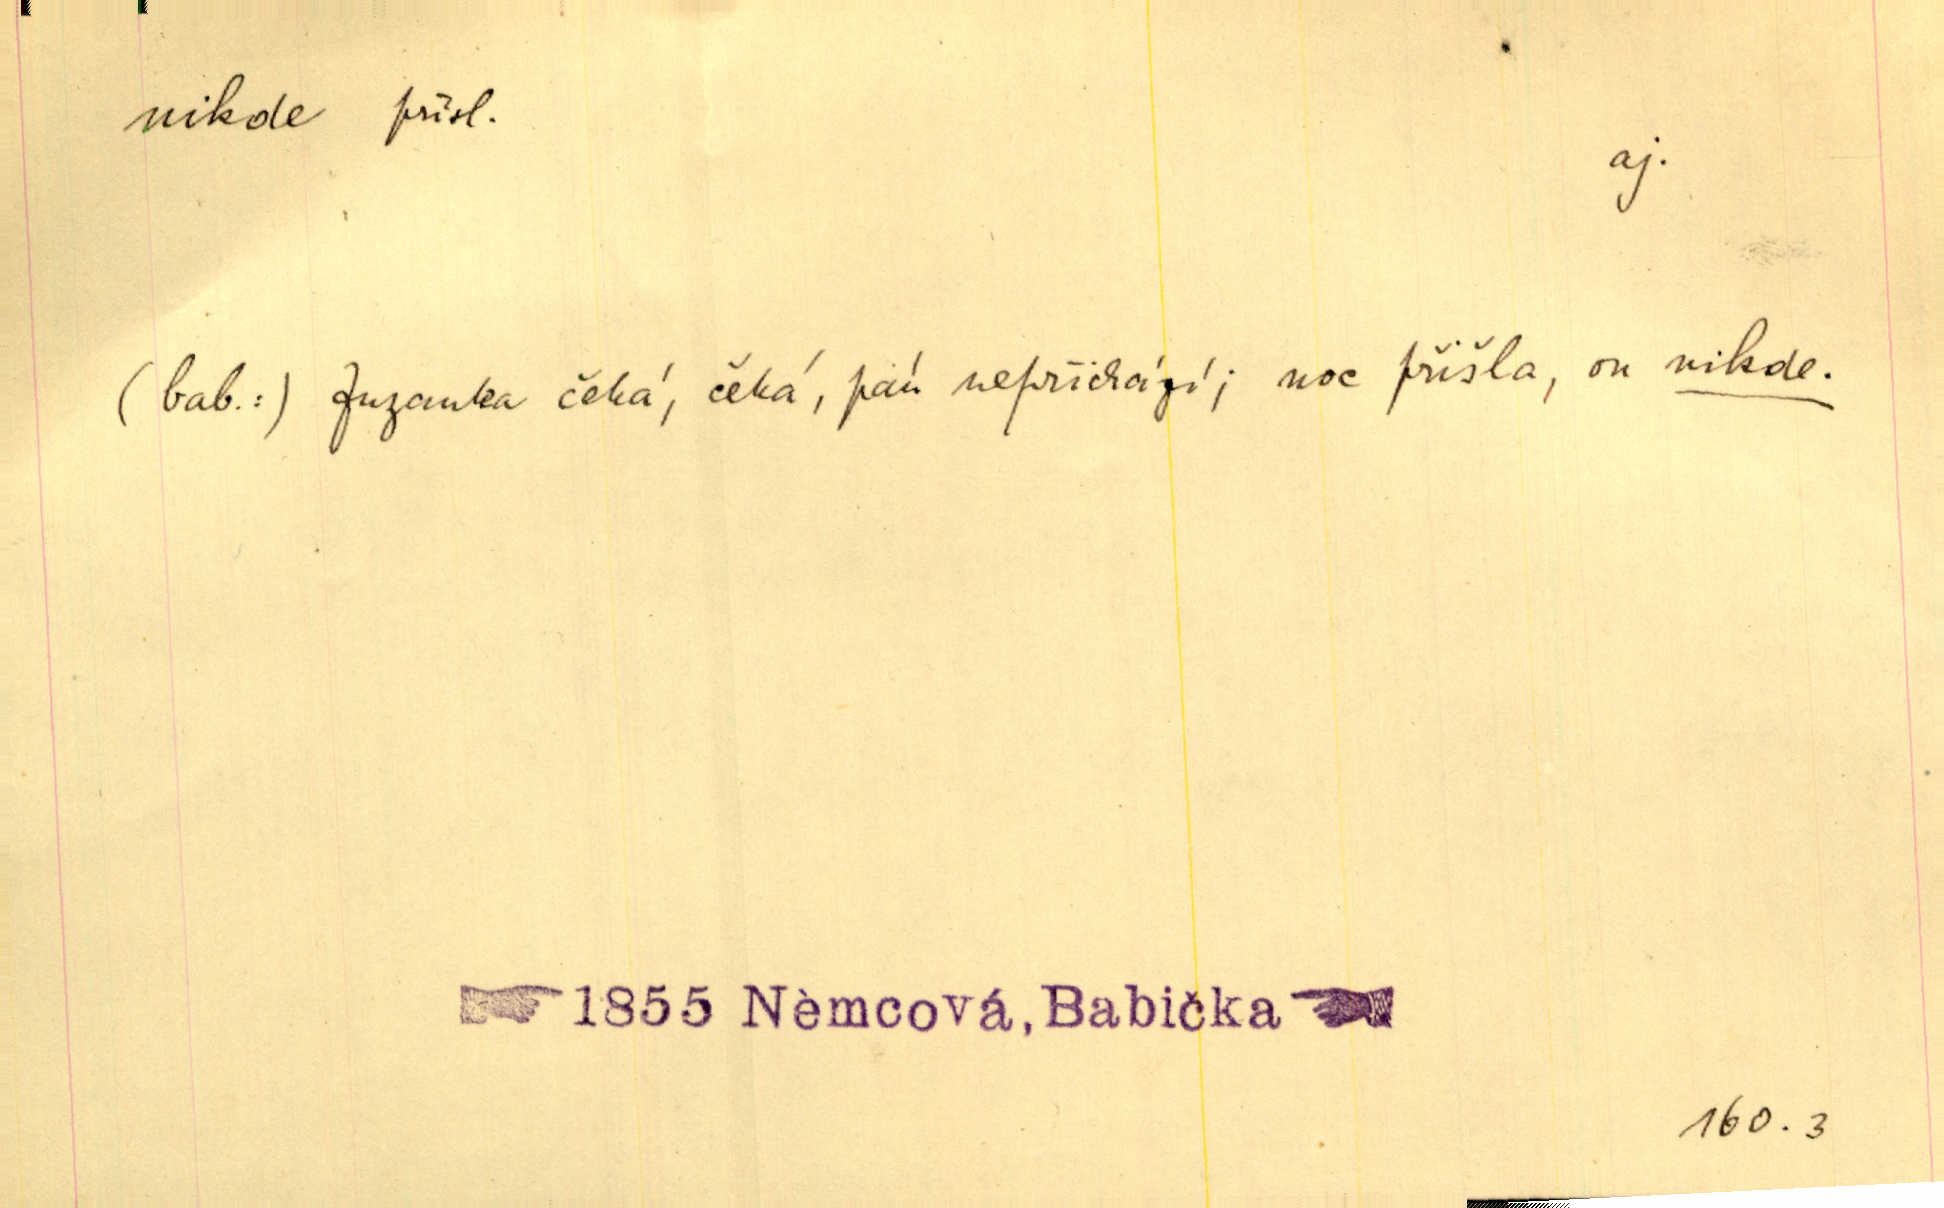 nikde přísl.
aj.
(bab.:) Zuzanka čeká, čeká, pán nepřichází; noc přišla, on nikde.
1855 Nèmcová, Babička
160. 3